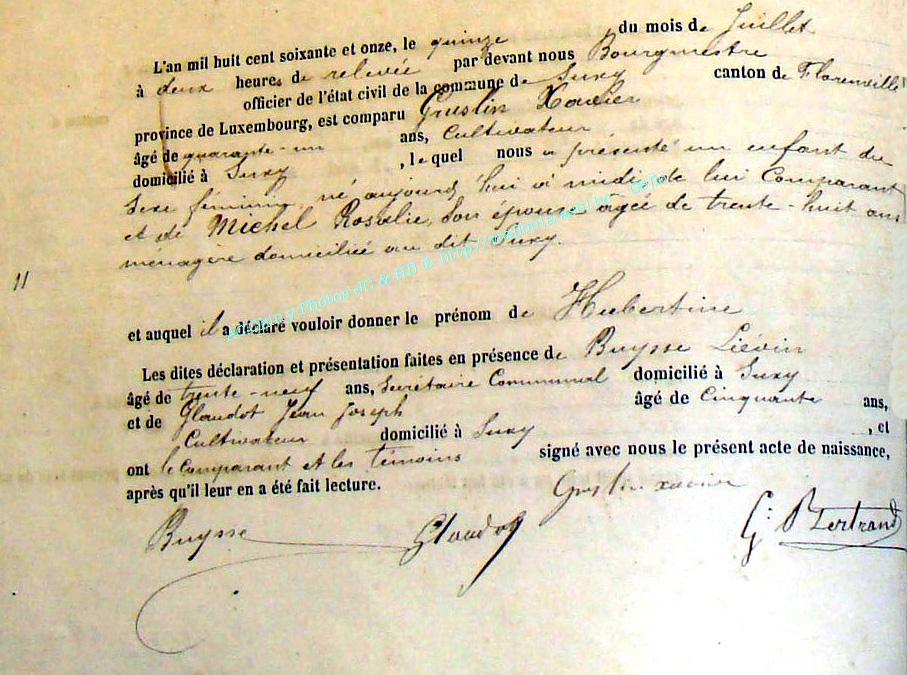 L'an mil huit cent soixante et onze, le quinze du mois de Juillet
à deux heures de relevée par devant nous Bourgmestre
officier de l'état civil de la commune de Suxy canton de Florenville
province de Luxembourg, est comparu Gruslin Xavier
âgé de quarante-un ans, Cultivateur
domicilié à Suxy, lequel nous a présenté un enfant du
sexe féminin, né aujourd'hui à midi, de lui Comparant
et de Michel Rosalie, son épouse agée de trente-huit ans
ménagère domicilié au dit Suxy.
11
et auquel il a déclaré vouloir donner le prénom de Hubertine
Les dites déclaration et présentation faites en présence de Buysse Liévin
âgé de trente-neuf ans, Secrétaire Communal domicilié à Suxy
et de Glaudot Jean Joseph âgé de Cinquante ans,
Cultivateur domicilié à Suxy, et
ont le Comparant et les témoins signé avec nous le présent acte de naissance,
après qu'il leur en a été fait lecture.
Gruslin xavier
Buysse Glaudot G. Bertrand